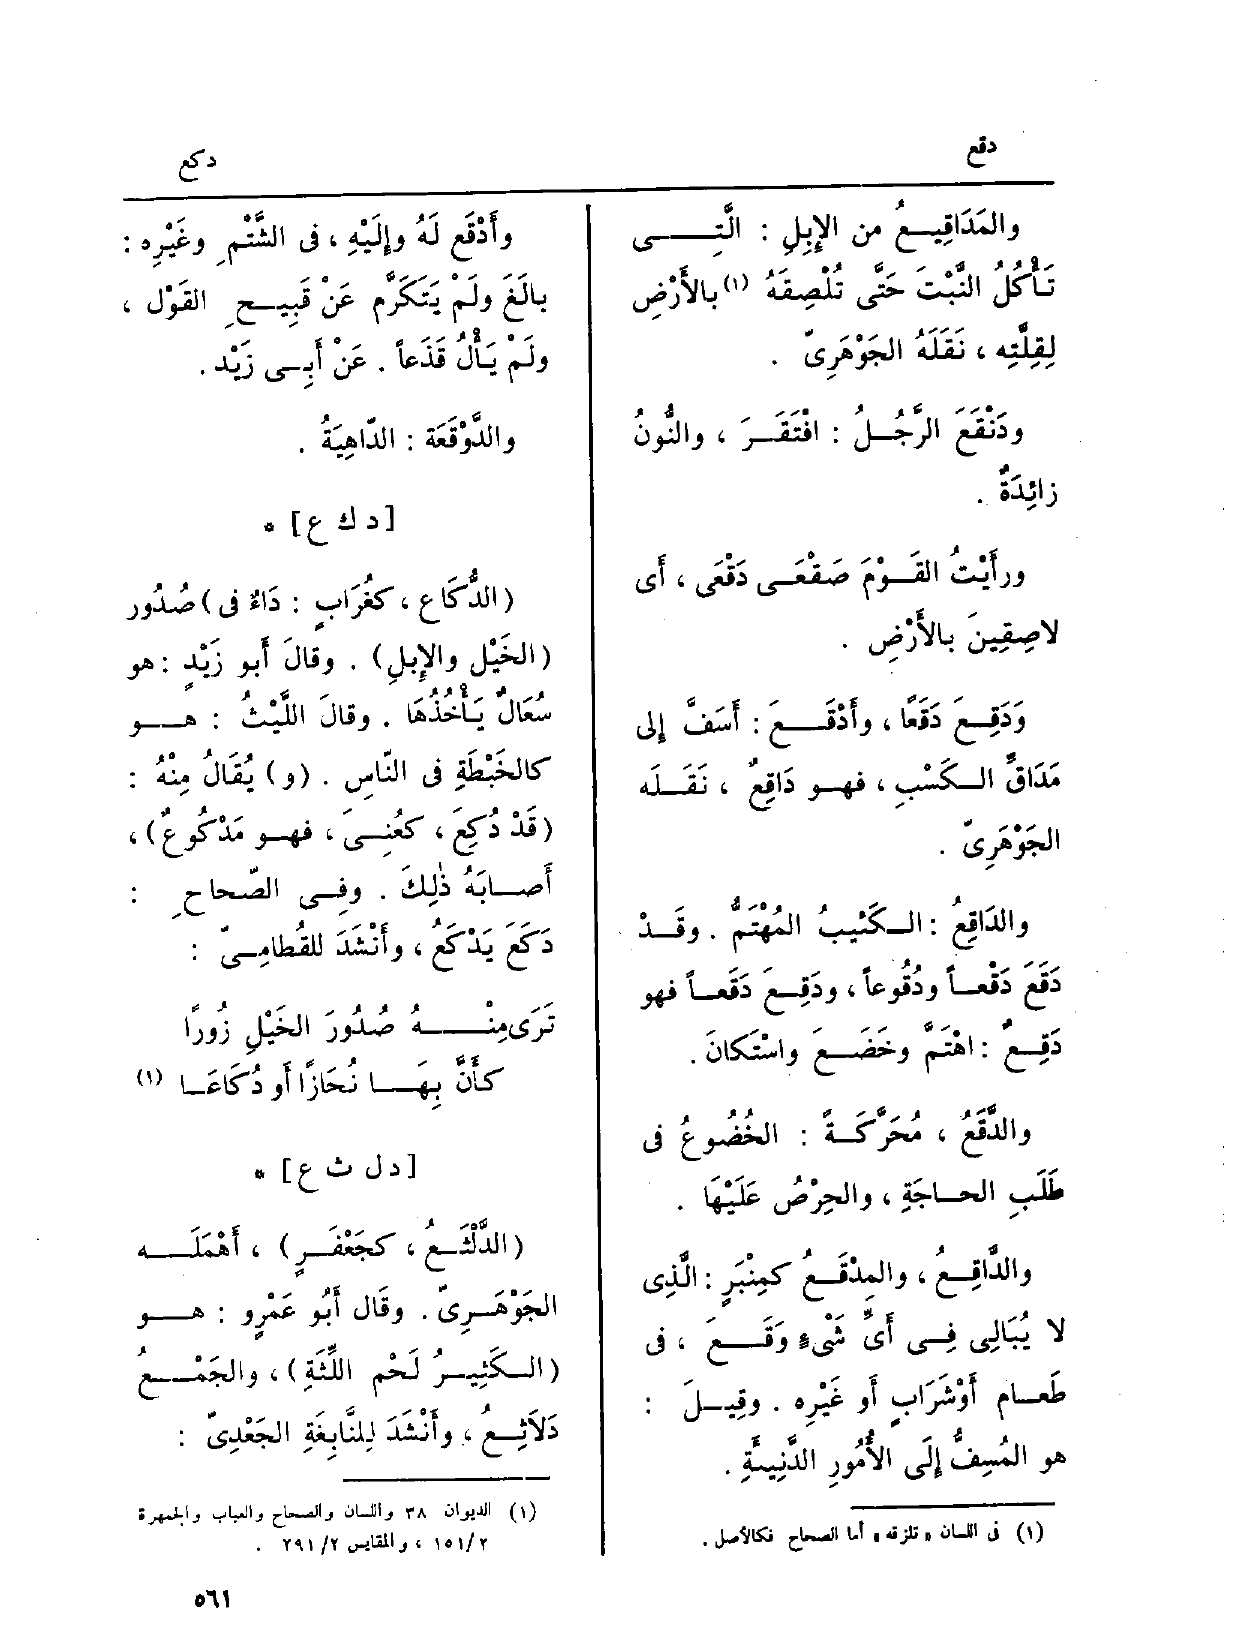 دقع
دكع
والمَدَاقِيـعُ من الإِبِلِ : الَّتِـــى
تَأْكُلُ النَّبْتَ حَتَّى تُلْصِقَهُ (١) بالأَرْضِ
لِقِلَّتِه ، نَقَلَهُ الجَوْهَرِىّ .
ودَنْقَعَ الرَّجُـلُ : افْتَقَـرَ ، والنُّونُ
زائِدَةٌ .
ورأَيْتُ القَـوْمَ صَقْعَـى دَقْعَى ، أَى
لاصِقِينَ بالأَرْضِ .
وَدَقِـعَ دَقَعًا ، وأَدْقَــعَ : أَسَفَّ إِلى
مَدَاقِّ الـكَسْبِ ، فهـو دَاقِعٌ ، نَقَـلَه
الجَوْهَرِىّ .
والدَاقِعُ : الـكَئيبُ المُهْتَمُّ . وقَـدْ
دَقَعَ دَقْعـاً ودُقُوعاً ، ودَقِـعَ دَقَعـاً فهو
دَقِـعٌ : اهْتَمَّ وخَضَـعَ واسْتَكانَ .
والدَّقَعُ ، مُحَرَّكَـةً : الخُضُوعُ فى
طَلَبِ الحـاجَةِ ، والحِرْصُ عَلَيْهَا .
والدَّاقِـعُ ، والمِدْقَـعُ كمِنْبَرٍ : الَّذِى
لا يُبَالِى فِـى أَىِّ شَىْءٍ وَقَــعَ ، فى
طَعـام أَوْشَرَابٍ أَو غَيْرِه . وقِيـلَ :
هو المُسِفُّ إِلَى الأُمُورِ الدَّنِيئَةِ .
(١) فى اللسان « تلزقه » أما الصحاح فكالأصل .
وأَدْقَع لَهُ وإِلَيْهِ ، فى الشَّتْمِ وغَيْرِه :
بالَغَ ولَمْ يَتَكَرَّم عَنْ قَبِيـحِ القَوْل ،
ولَمْ يَأْلُ قَذَعاً . عَنْ أَبِـى زَيْد .
والدَّوْقَعَة : الدّاهِيَةُ .
[ د ك ع ] *
( الدُّكَاع ، كغُرَابٍ : دَاءٌ فى ) صُدُور
( الخَيْل والإِبِلِ ) . وقالَ أَبو زَيْدٍ : هو
سُعَالٌ يَأْخُذُهَا . وقالَ اللَّيْثُ : هــو
كالخَبْطَةِ فى النّاسِ . ( و ) يُقَالُ مِنْهُ :
( قَدْ دُكِعَ ، كعُنِـىَ ، فهـو مَدْكُوعٌ ) ،
أَصـابَهُ ذٰلِكَ . وفِـى الصّحاحِ :
دَكَعَ يَدْكَعُ ، وأَنْشَدَ للقُطامِـىّ :
تَرَى مِنْــهُ صُدُورَ الخَيْلِ زُورًا
كأَنَّ بِهَــا نُحَازًا أَو دُكَاعَـا (١)
[ د ل ث ع ] *
( الدَّلْثَـعُ ، كجَعْفَـرٍ ) ، أَهْمَلَــه
الجَوْهَـرِىّ . وقَال أَبُو عَمْرٍو : هــو
( الـكَثِيـرُ لَحْمِ اللِّثَةِ ) ، والجَمْــعُ
دَلاَثِـعُ ، وأَنْشَدَ لِلنَّابِغَةِ الجَعْدِىّ :
(١) الديوان ٣٨ واللسان والصحاح والعباب والجمهرة
٢/ ١٥١ ، والمقاييس ٢/ ٢٩١ .
٥٦١